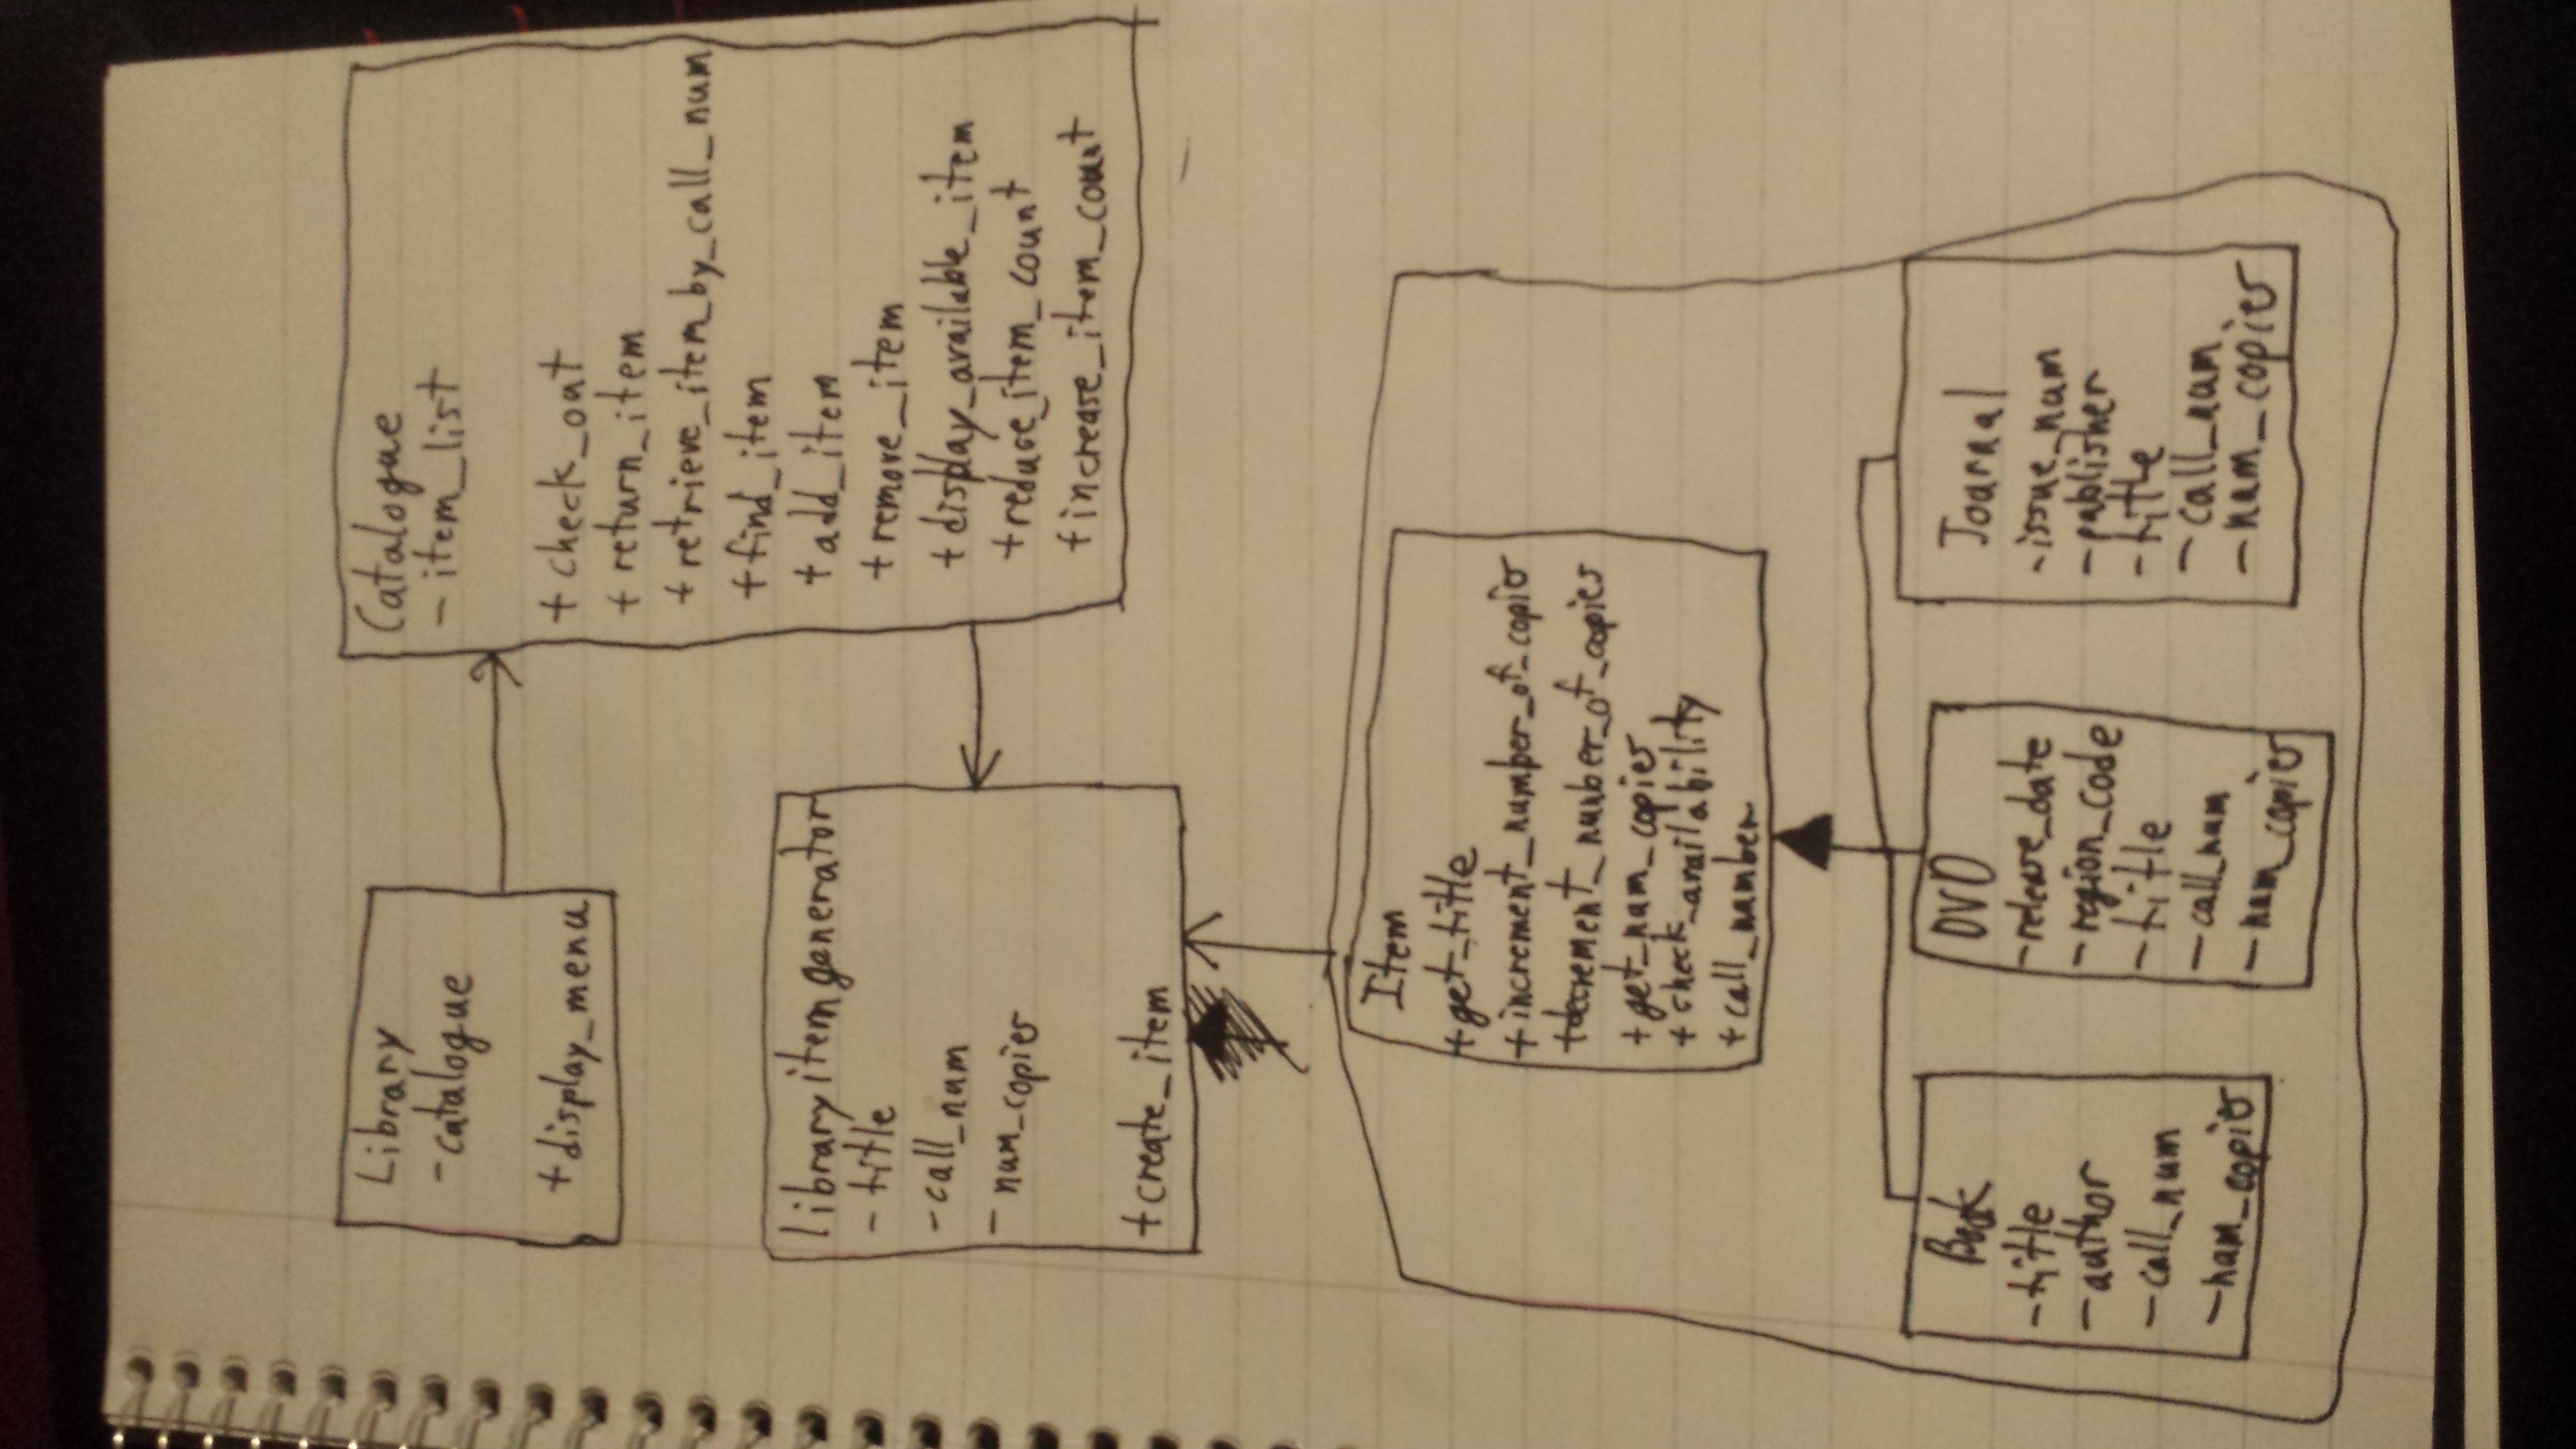 Library
- catalogue
+ display_menu
Catalogue
- item_list
+ check_out
+ return_item
+ retrieve_item_by_call_num
+ find_item
+ add_item
+ remove_item
+ display_available_item
+ reduce_item_count
+ increase_item_count
library item generator
- title
- call_num
- num_copies
+ create_item
Item
+ get_title
+ increment_number_of_copies
+ decrement_number_of_copies
+ get_num_copies
+ check_availability
+ call_number
Book
- title
- author
- call_num
- num_copies
DVD
- release_date
- region_code
- title
- call_num
- num_copies
Journal
- issue_num
- publisher
- title
- call_num
- num_copies